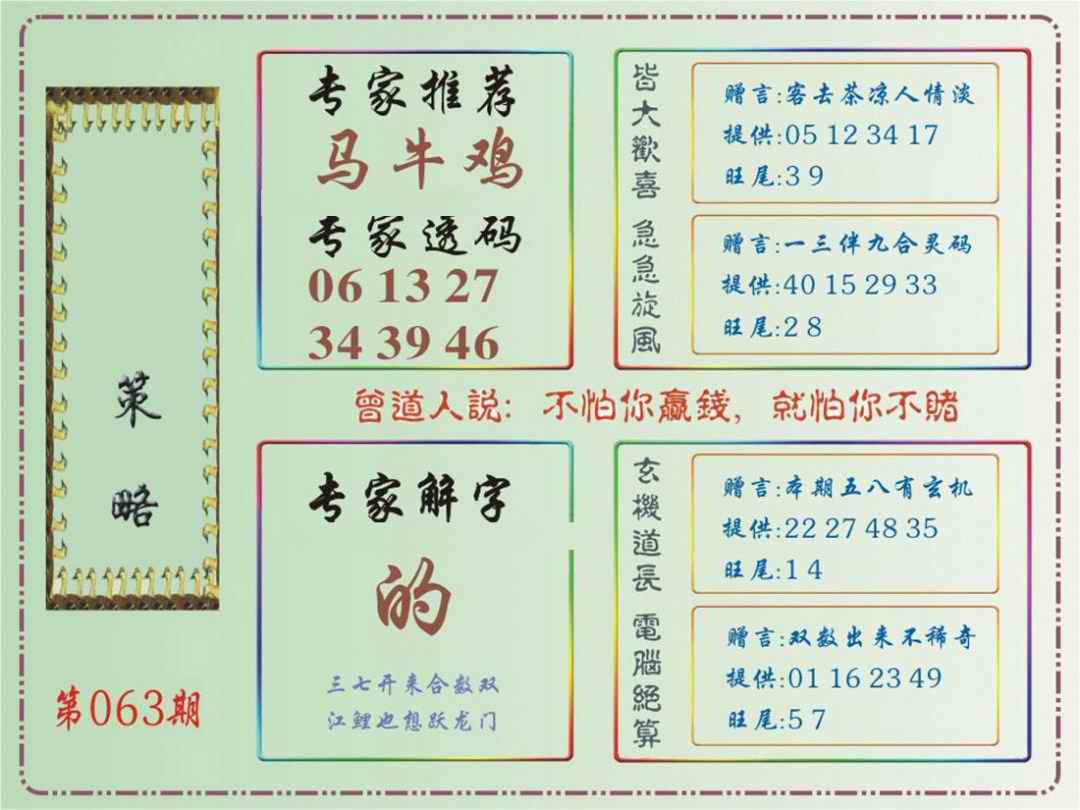 策略
第063期
专家推荐
马牛鸡
专家透码
06 13 27
34 39 46
皆大歡喜
赠言:客去茶凉人情淡
提供:05 12 34 17
旺尾:3 9
急急旋風
赠言:一三伴九合灵码
提供:40 15 29 33
旺尾:2 8
曾道人説: 不怕你贏錢, 就怕你不賭
专家解字
的
三七开来合数双
江鲤也想跃龙门
玄機道長
赠言:本期五八有玄机
提供:22 27 48 35
旺尾:1 4
電腦絕算
赠言:双数出来不稀奇
提供:01 16 23 49
旺尾:5 7